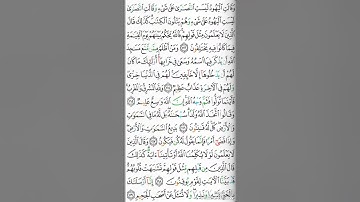 وَقَالَتِ ٱلْيَهُودُ لَيْسَتِ ٱلنَّصَـٰرَىٰ عَلَىٰ شَىْءٍ وَقَالَتِ ٱلنَّصَـٰرَىٰ
لَيْسَتِ ٱلْيَهُودُ عَلَىٰ شَىْءٍ وَهُمْ يَتْلُونَ ٱلْكِتَـٰبَ كَذَٰلِكَ قَالَ
ٱلَّذِينَ لَا يَعْلَمُونَ مِثْلَ قَوْلِهِمْ فَٱللَّهُ يَحْكُمُ بَيْنَهُمْ يَوْمَ ٱلْقِيَـٰمَةِ
فِيمَا كَانُوا۟ فِيهِ يَخْتَلِفُونَ ١١٣ وَمَنْ أَظْلَمُ مِمَّن مَّنَعَ مَسَـٰجِدَ
ٱللَّهِ أَن يُذْكَرَ فِيهَا ٱسْمُهُۥ وَسَعَىٰ فِى خَرَابِهَآ أُو۟لَـٰٓئِكَ مَا كَانَ
لَهُمْ أَن يَدْخُلُوهَآ إِلَّا خَآئِفِينَ لَهُمْ فِى ٱلدُّنْيَا خِزْىٌ
وَلَهُمْ فِى ٱلْـَٔاخِرَةِ عَذَابٌ عَظِيمٌ ١١٤ وَلِلَّهِ ٱلْمَشْرِقُ وَٱلْمَغْرِبُ
فَأَيْنَمَا تُوَلُّوا۟ فَثَمَّ وَجْهُ ٱللَّهِ إِنَّ ٱللَّهَ وَٰسِعٌ عَلِيمٌ ١١٥
وَقَالُوا۟ ٱتَّخَذَ ٱللَّهُ وَلَدًا سُبْحَـٰنَهُۥ بَل لَّهُۥ مَا فِى ٱلسَّمَـٰوَٰتِ
وَٱلْأَرْضِ كُلٌّ لَّهُۥ قَـٰنِتُونَ ١١٦ بَدِيعُ ٱلسَّمَـٰوَٰتِ وَٱلْأَرْضِ
وَإِذَا قَضَىٰٓ أَمْرًا فَإِنَّمَا يَقُولُ لَهُۥ كُن فَيَكُونُ ١١٧ وَقَالَ ٱلَّذِينَ
لَا يَعْلَمُونَ لَوْلَا يُكَلِّمُنَا ٱللَّهُ أَوْ تَأْتِينَآ ءَايَةٌ كَذَٰلِكَ
قَالَ ٱلَّذِينَ مِن قَبْلِهِم مِّثْلَ قَوْلِهِمْ تَشَـٰبَهَتْ قُلُوبُهُمْ
قَدْ بَيَّنَّا ٱلْـَٔايَـٰتِ لِقَوْمٍ يُوقِنُونَ ١١٨ إِنَّآ أَرْسَلْنَـٰكَ
بِٱلْحَقِّ بَشِيرًا وَنَذِيرًا وَلَا تُسْـَٔلُ عَنْ أَصْحَـٰبِ ٱلْجَحِيمِ ١١٩